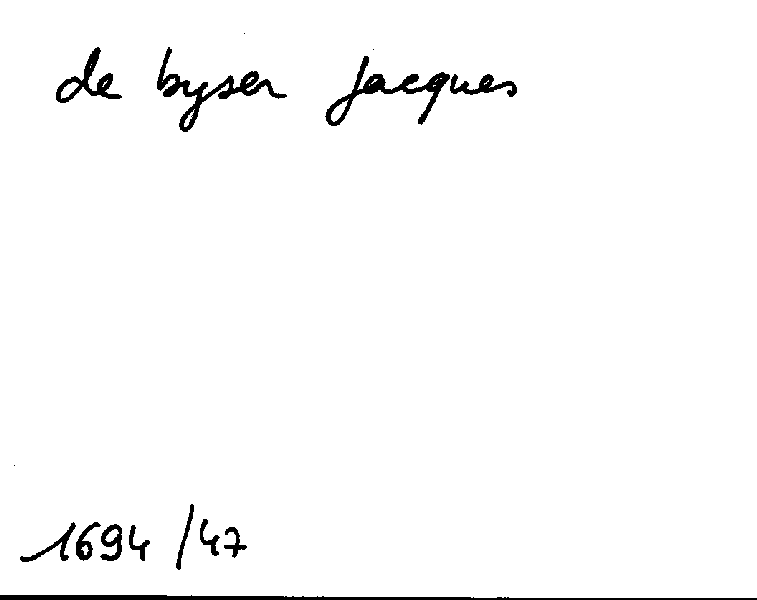 de byser Jacques
1694/47